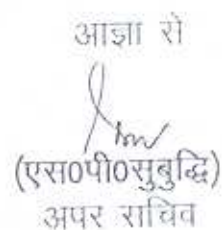 आज्ञा से
(एस0पी0सुबुद्धि)
अपर सचिव